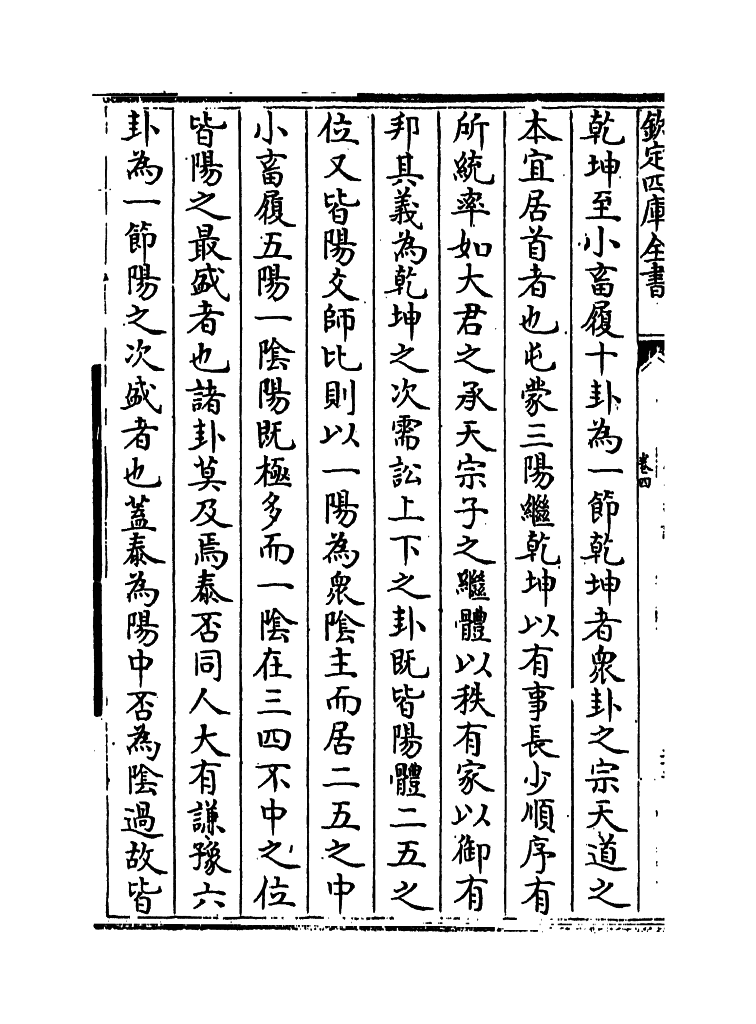 欽定四庫全書
卷四
乾坤至小畜履十卦為一節乾坤者衆卦之宗天道之
本宜居首者也屯蒙三陽繼乾坤以有事長少順序有
所統率如大君之承天宗子之繼體以秩有家以御有
邦其義為乾坤之次需訟上下之卦既皆陽體二五之
位又皆陽爻師比則以一陽為衆陰主而居二五之中
小畜履五陽一陰陽既極多而一陰在三四不中之位
皆陽之最盛者也諸卦莫及焉泰否同人大有謙豫六
卦為一節陽之次盛者也蓋泰為陽中否為陰過故皆